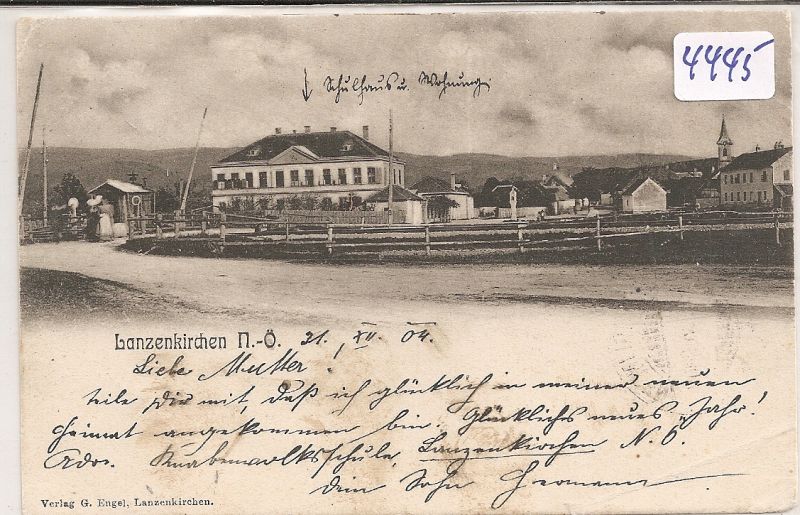 4445
Schulhaus u. Wohnung
Lanzenkirchen N.-Ö. 21. XII. 04.
Liebe Mutter!
teile Dir mit, daß ich glücklich in meiner neuen
Heimat angekommen bin. Glücklichs neues Jahr!
Adr. Knabenvolksschule, Lanzenkirchen N. Ö.
dein Sohn Hermann
Verlag G. Engel, Lanzenkirchen.